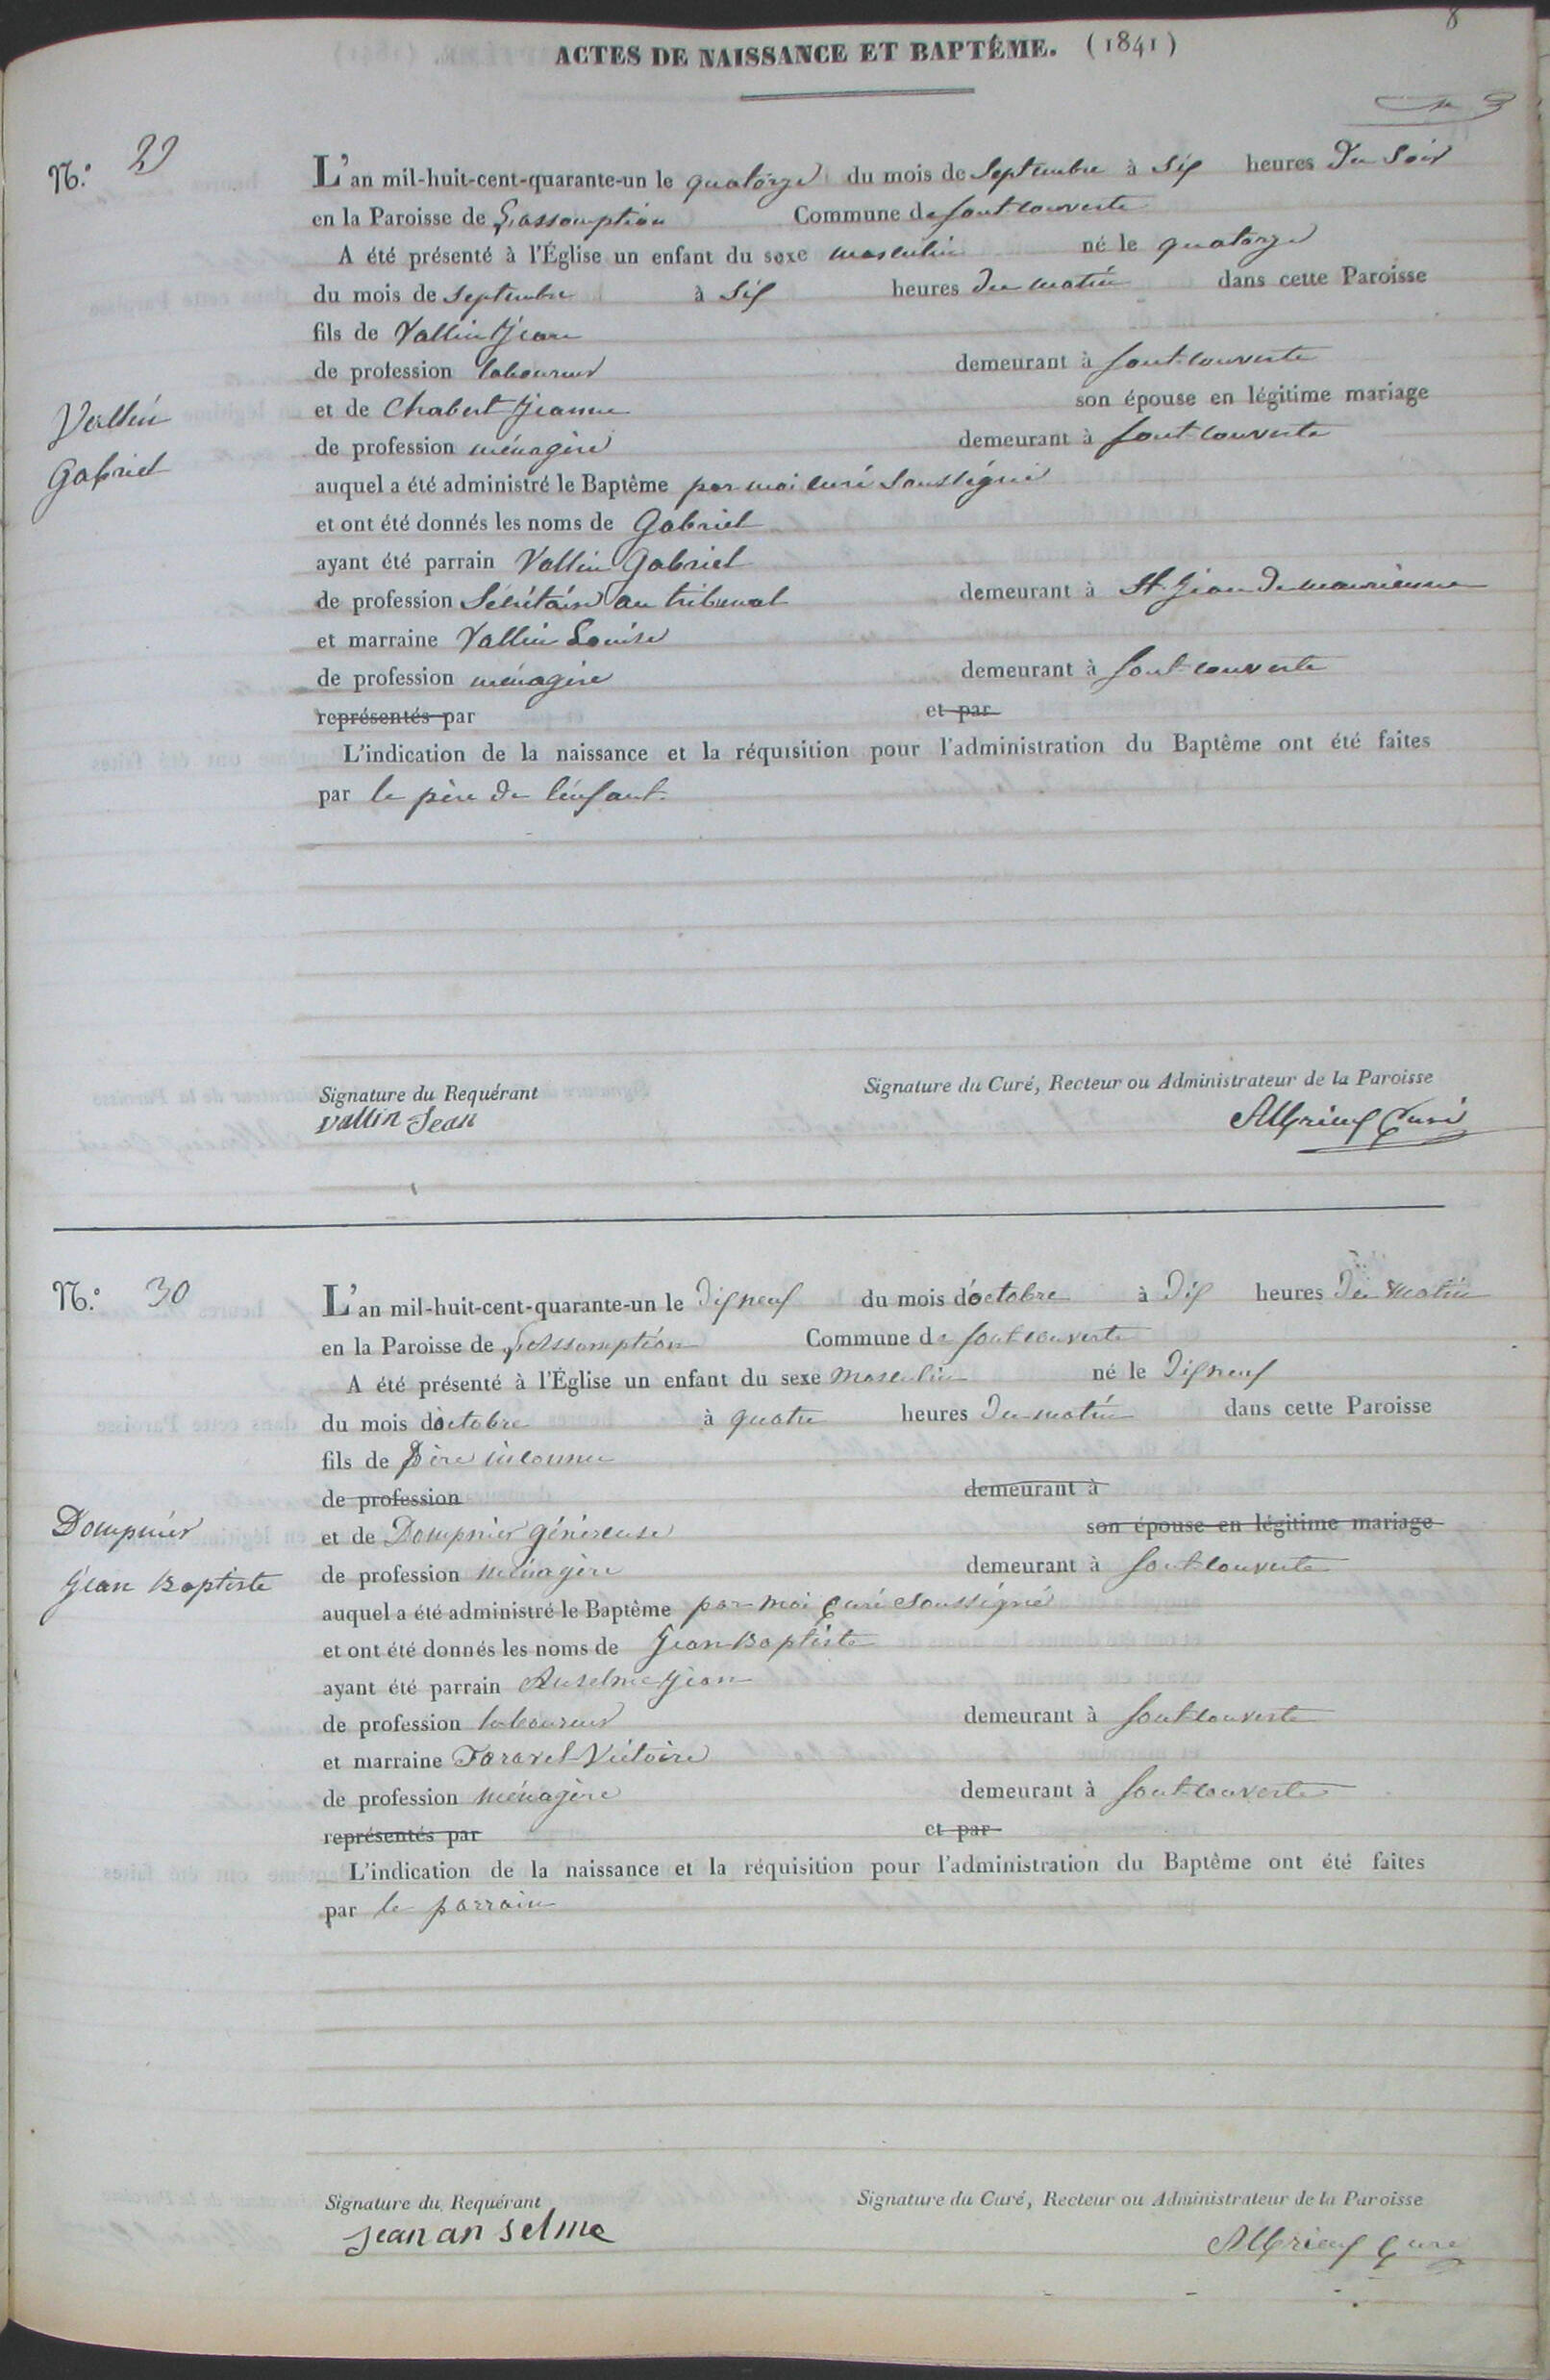 8
ACTES DE NAISSANCE ET BAPTÊME. (1841)
N.º 29
L'an mil-huit-cent-quarante-un le quatorze du mois de septembre à six heures du soir
en la Paroisse de L'assomption Commune de fontcouverte
A été présenté à l'Église un enfant du sexe masculin né le quatorze
du mois de septembre à six heures du matin dans cette Paroisse
fils de Vallin Jean
de profession laboureur demeurant à fontcouverte
et de Chabert Jeanne son épouse en légitime mariage
Vallin
de profession ménagère demeurant à fontcouverte
Gabriel
auquel a été administré le Baptême par moi curé soussigné
et ont été donnés les noms de Gabriel
ayant été parrain Vallin Gabriel
de profession Sécrétaire au tribunal demeurant à St Jean de maurienne
et marraine Vallin Louise
de profession ménagère demeurant à fontcouverte
représentés par et par
L'indication de la naissance et la réquisition pour l'administration du Baptême ont été faites
par le père de l'enfant.
Signature du Requérant Signature du Curé, Recteur ou Administrateur de la Paroisse
Vallin Jean Albrieux Curé
N.º 30
L'an mil-huit-cent-quarante-un le dixneuf du mois d'octobre à dix heures du matin
en la Paroisse de L'assomption Commune de fontcouverte
A été présenté à l'Église un enfant du sexe masculin né le dixneuf
du mois d'octobre à quatre heures du matin dans cette Paroisse
fils de Père inconnu
de profession demeurant à
Dompnier
et de Dompnier Généreuse son épouse en légitime mariage
Jean Baptiste
de profession ménagère demeurant à fontcouverte
auquel a été administré le Baptême par moi curé soussigné
et ont été donnés les noms de Jean Baptiste
ayant été parrain Anselme Jean
de profession laboureur demeurant à fontcouverte
et marraine Taravel Victoire
de profession ménagère demeurant à fontcouverte
représentés par et par
L'indication de la naissance et la réquisition pour l'administration du Baptême ont été faites
par le parrain
Signature du Requérant Signature du Curé, Recteur ou Administrateur de la Paroisse
jean an selme Albrieux Curé